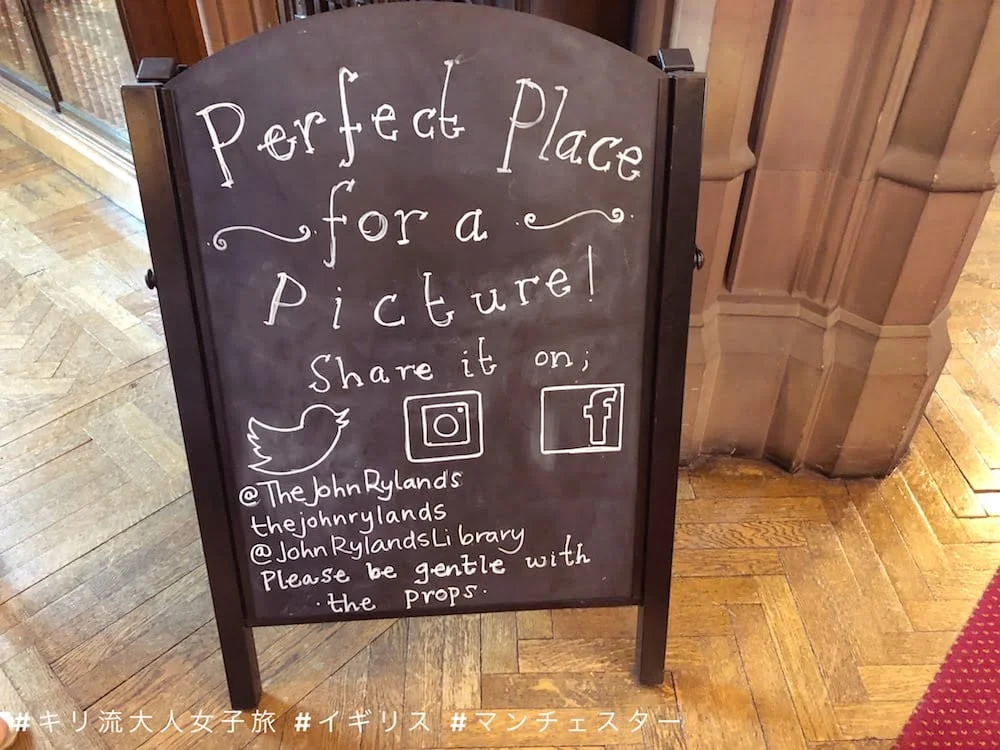 Perfect Place
for a
Picture!
Share it on;
@TheJohnRylands
thejohnrylands
@JohnRylandsLibrary
Please be gentle with
the props.
#キリ流大人女子旅 #イギリス #マンチェスター